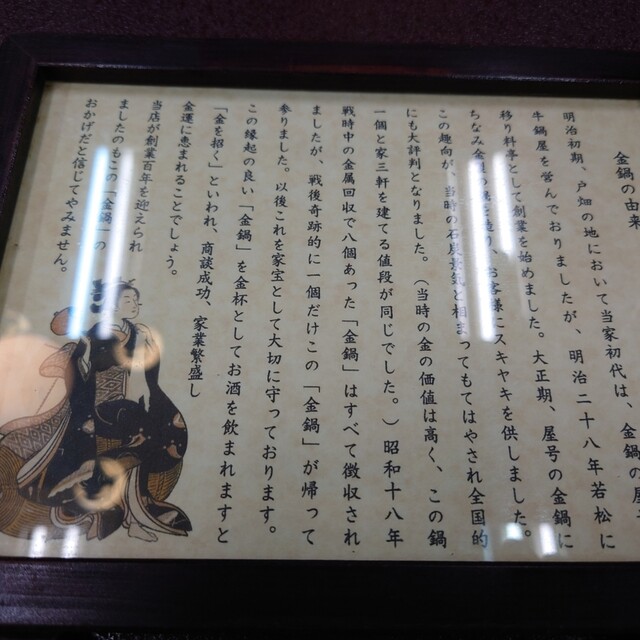 金鍋の由来
明治初期、戸畑の地において当家初代は、金鍋の屋
牛鍋屋を営んでおりましたが、明治二十八年若松に
移り料亭として創業を始めました。大正期、屋号の金鍋に
ちなみ金 の お客様にスキヤキを供しました。
この趣向が、当時の石炭景気と相まってもてはやされ全国的
にも大評判となりました。(当時の金の価値は高く、この鍋
一個と家三軒を建てる値段が同じでした。)昭和十八年
戦時中の金属回収で八個あった「金鍋」はすべて徴収され
ましたが、戦後奇跡的に一個だけこの「金鍋」が帰って
参りました。以後これを家宝として大切に守っております。
この縁起の良い、「金鍋」を金杯としてお酒を飲まれますと
「金を招く」といわれ、商談成功、家業繁盛し
金運に恵まれることでしょう。
当店が創業百年を迎えられ
ましたのもこの「金鍋」の
おかげだと信じてやみません。